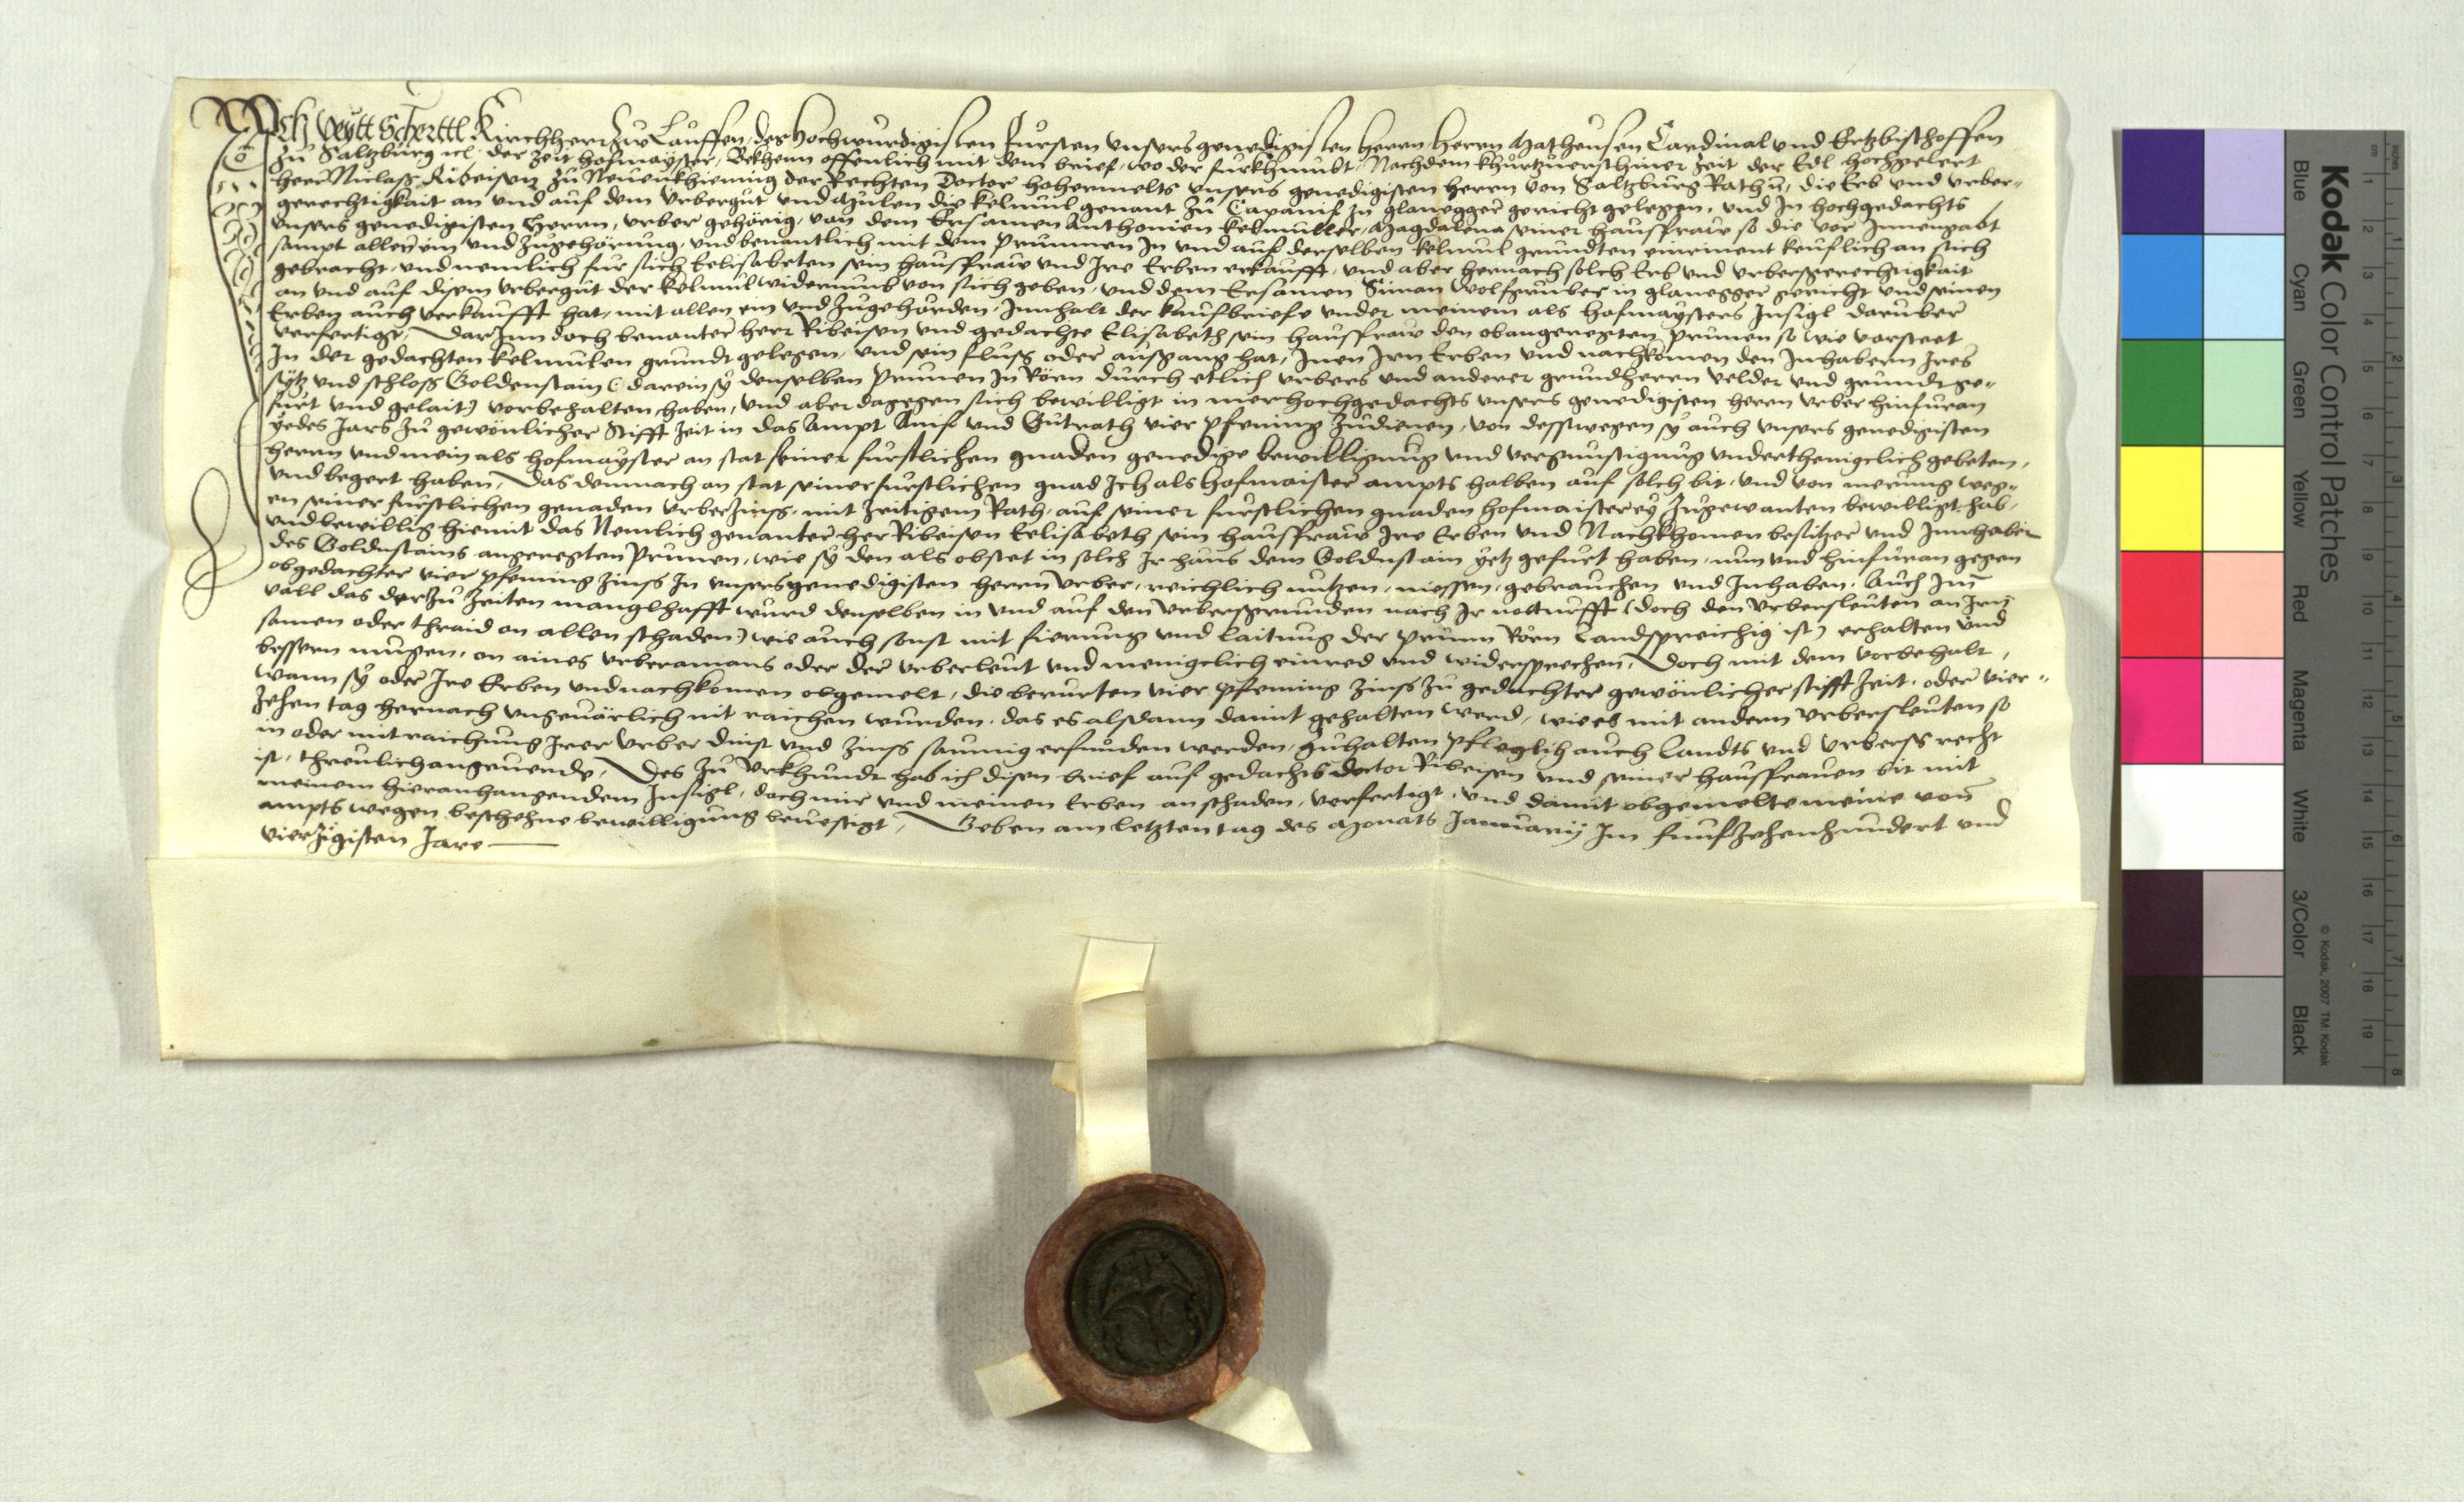 Ich Veytt Scherttl Kirchherr Zw Lauffen, des Hochwurdigisten Fursten unsers genedigisten Herrn Herrn Matheusen Cardinal und Ertzbischoffen
zu Saltzburg etc. der Zeit Hofmayster, Bekhenn offenlich mit dem brief, wo der furkhumbt, Nachdem khurtzuerschiner Zeit der Edl Hochgelert
herr Niclaß Ribeisen zu Neuenkhieming der Rechten Doctor hohermelts unsers genedigisten Herrn von Saltzburg Rath etc, die Erb und Urber-
gerechtigkait an und auf dem Urbergut und Mulen die Kelmul genant zu Taxanif in glanegger gericht gelegen, und in hochgedachts
unsers genedigisten Herrn, Urber gehörig, von dem Ersamen Anthonien Kelmuller, Magdalena seiner hausfraw so die vor Innengabt
sampt aller ein und Zugehörung, und benantlich mit dem Prunnen In und auf derselben Kelmul grundten einrinent keuflich an sich
gebracht, und nemlich fur sich Eelisabeten sein hausfraw und Ire Erben erkaufft, und aber hernach solch Erb und Urbersgerechtigkait
an und auf disem Urbergut der Kelmul widerumb von sich geben, und dem Ersamen Simon Wolfgruber in glanegger gericht und seinen
Erben auch verkaufft hat, mit allen ein und Zugehörden, Innhalt der kaufbriefe under meinem als hofmaysters Insigl daruber
verfertigt, Darzun doch benanter herr Ribeisen und gedachte Elisabeth sein hausfraw den obangeregten Prunen so wie vorsteet
In der gedachten Kelmulen grundt gelegen, und sein fluss oder ausgang hat, Inen Irn Erben und nachkomen den Inhabern Ires
sytz und schloß Goldenstain (darein sy denselben Prunen In Rörn durch etlich urbers und anderer grundherrn velder und grundt ge-
furt und gelait) vorbehalten haben, und aber dagegen sich bewilligt in merhochgedachts unsers genedigisten herrn urber hinfuran
yedes Jars zu gewönlicher Stifft Zeit in das Ampt Anif und Gutrath vier pfening zudienen, von desswegen sy auch unsers genedigisten
herrn und mein als hofmayster an stat seiner furstlichen gnaden genedige bewilligung und vergunstigung underthenigclich gebeten,
und begert haben, Das demnach an stat seiner furstlichen gnad Ich als hofmaister ampts halben auf solch bit, und von merung weg-
en seiner furstlichen genaden Urberzins, mit zeitigem Rath, auf seiner furstlichen gnaden hofmaisterey Zugewanten bewilligt hab,
und bewillig hiemit das Nemlich genanter her Ribeisen Eelisabeth sein hausfraw Ire Erben und Nachkhomen besitzer und Innhaber
des Goldnstains angeregten Prunen, wie sy den als obstet in solch Ir haus dem Goldnstain yetz gefurt haben, nun und hinfuran gegen
obgedachter vier pfening Zinss In unsers genedigisten herrn Urber, reichlich nutzen, niessen, gebrauchen und Inhaben, Auch Im
vall das der zu Zeiten manglhafft wurd denselben in und auf den Urbersgrunden nach Ir notturfft (doch den Urbersleuten an Irn
samen oder thraid on allen schaden) wie auch sonst mit fierung und laitung der Prunn Rörn Landspreichig ist) erhalten und
bessern mugen, on aines urberamans oder der urberleut und menigclich einred und widersprechen, Doch mit dem vorbehalt,
wann sy oder Ire Erben und nachkomen obgemelt, die berurten vier pfening Zinss zu gedachter gewönlicher stifft Zeit, oder vier-
zehen tag hernach ungevärlich nit raichen wurden, das es alsdann damit gehalten werd, wie es mit andern Urbersleuten so
in oder mit raichung Irer Urber dinst und Zinss saumig erfunden werden, zuhalten pfleglich auch Landts und Urberss recht
ist, threulich angeuerde, Des zu Urkhundt hab ich disen brief auf gedachts doctor Ribeisen und seiner hausfrauen bit mit
meinem hieranhangendem Insigl, doch mir und meinen Erben an schaden, verfertigt, und damit obgemelte meine von
ampts wegen beschehne bewilligung bevestigt, Geben am letzten tag des Monats Januarij Im funfzehenhundert und
vierzigisten Jare
Kodak Color Control Patches
© Kodak, 2007 TM: Kodak
Blue Cyan Green Yellow Red Magenta White 3/Color Black
cm 1 2 3 4 5 6 7 8 9 10 11 12 13 14 15 16 17 18 19
inches 1 2 3 4 5 6 7 8